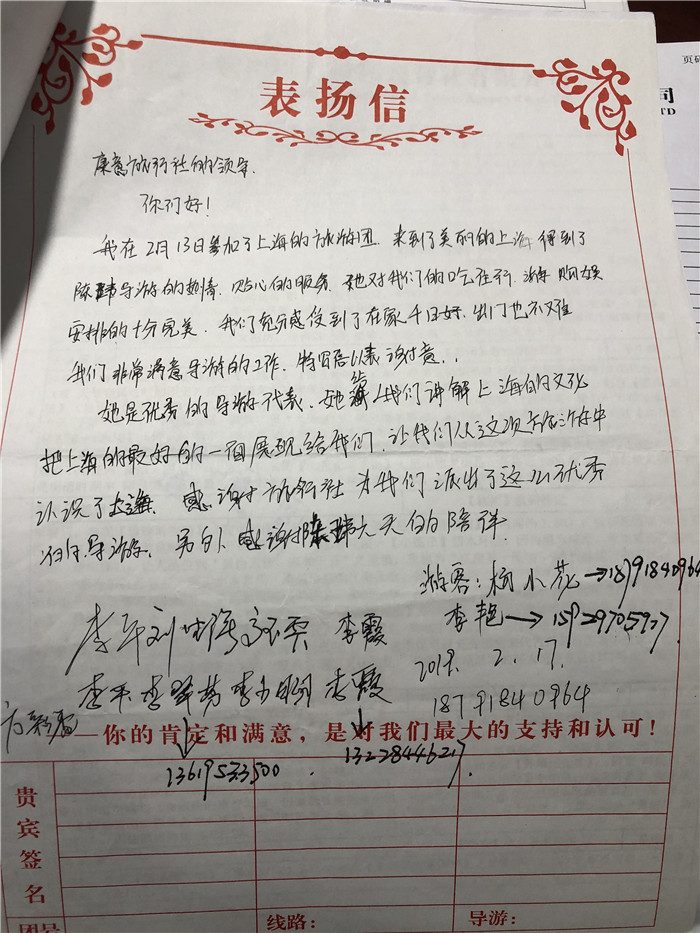 页码
司
TD
表扬信
康意旅行社的领导.
你们好!
我在2月13日参加了上海的旅游团.来到了美丽的上海得到了
陈玮导游的热情.贴心的服务.她对我们的吃住行.游购娱
安排的十分完美.我们充分感受到了在家千日好.出门也不难
我们非常满意导游的工作.特留言以表谢意..
她是优秀的导游代表.她给我们讲解上海的文化
把上海的最好的一面展现给我们.让我们从这次旅游中
认识了上海.感谢旅行社为我们派出了这么优秀
的导游.另外感谢陈玮六天的陪伴.
游客:杨小花→18791840964
李艳→15929705927
李平 李霞
2019.2.17.
李平 李 李 李霞
18791840964
你的肯定和满意,是对我们最大的支持和认可!
13619533500.13228446217.
贵宾签名
团号
线路:
导游: